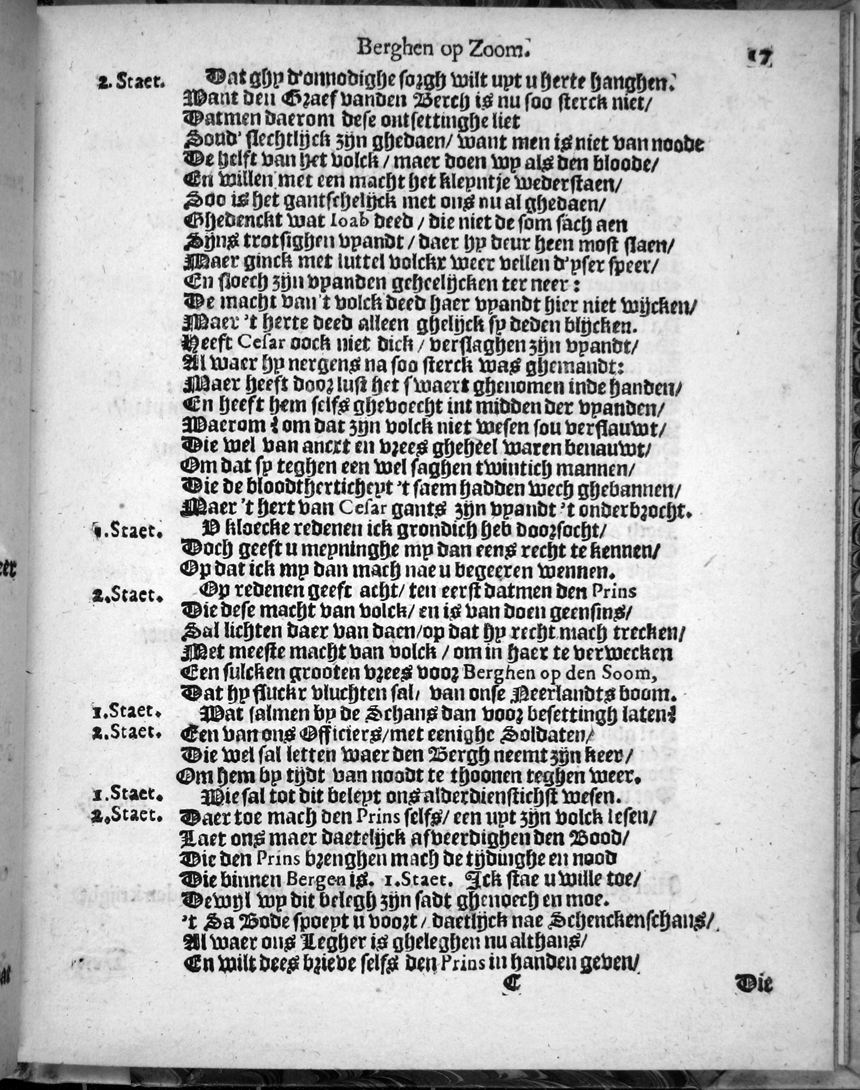 Berghen op Zoom.
17
2. Staet. Dat ghy d'onnodighe sorgh wilt uyt u herte hanghen.
Want den Graef vanden Berch is nu soo sterck niet/
Datmen daerom dese ontsettinghe liet
Soud' slechtlijck zijn ghedaen/ want men is niet van noode
De helft van het volck / maer doen wy als den bloode/
En willen met een macht het kleyntje wederstaen/
Soo is het gantschelijck met ons nu al ghedaen/
Ghedenckt wat Ioab deed / die niet de som sach aen
Sijns trotsighen vyandt / daer hy deur heen most slaen/
Maer ginck met luttel volckx weer vellen d'yser speer/
En sloech zijn vyanden geheelijcken ter neer :
De macht van 't volck deed haer vyandt hier niet wijcken/
Maer 't herte deed alleen ghelijck sy deden blijcken.
Heeft Cesar oock niet dick / verslaghen zijn vyandt/
Al waer hy nergens na soo sterck was ghemandt:
Maer heeft door lust het swaert ghenomen inde handen/
En heeft hem selfs ghevoecht int midden der vyanden/
Waerom ? om dat zijn volck niet wesen sou verflauwt/
Die wel van ancxt en vrees gheheel waren benauwt/
Om dat sy teghen een wel saghen twintich mannen/
Die de bloodthertichept 't saem hadden wech ghebannen/
Maer 't hert van Cesar gants zijn vyandt 't onderbrocht.
1. Staet. D kloecke redenen ick grondich heb doorsocht/
Doch geeft u meyninghe my dan eens recht te kennen/
Op dat ick my dan mach nae u begeeren wennen.
2. Staet. Op redenen geeft acht/ ten eerst datmen den Prins
Die dese macht van volck/ en is van doen geensins/
Sal lichten daer van daen/op dat hy recht mach trecken/
Met meeste macht van volck / om in haer te verwecken
Een sulcken grooten vrees voor Berghen op den Soom,
Dat hy fluckx vluchten sal, van onse Neerlandts boom.
1. Staet. Wat salmen by de Schans dan voor besettingh laten?
2. Staet. Een van ons Officiers/met eenighe Soldaten/
Die wel sal letten waer den Bergh neemt zijn keer/
Om hem by tijdt van noodt te thoonen teghen weer.
1. Staet. Wie sal tot dit beleyt ons alderdienstichst wesen.
2. Staet. Daer toe mach den Prins selfs/ een uyt zijn volck lesen/
Laet ons maer daetelijck afveerdighen den Bood/
Die den Prins brenghen mach de tijdinghe en nood
Die binnen Bergen is. 1. Staet. Ick stae u wille toe/
Dewijl wy dit belegh zijn sadt ghenoech en moe.
't Sa Bode spoeyt u voort / daetlijck nae Schenckenschans/
Al waer ons Legher is gheleghen nu althans/
En wilt dees brieve selfs den Prins in handen geven/
C
Die